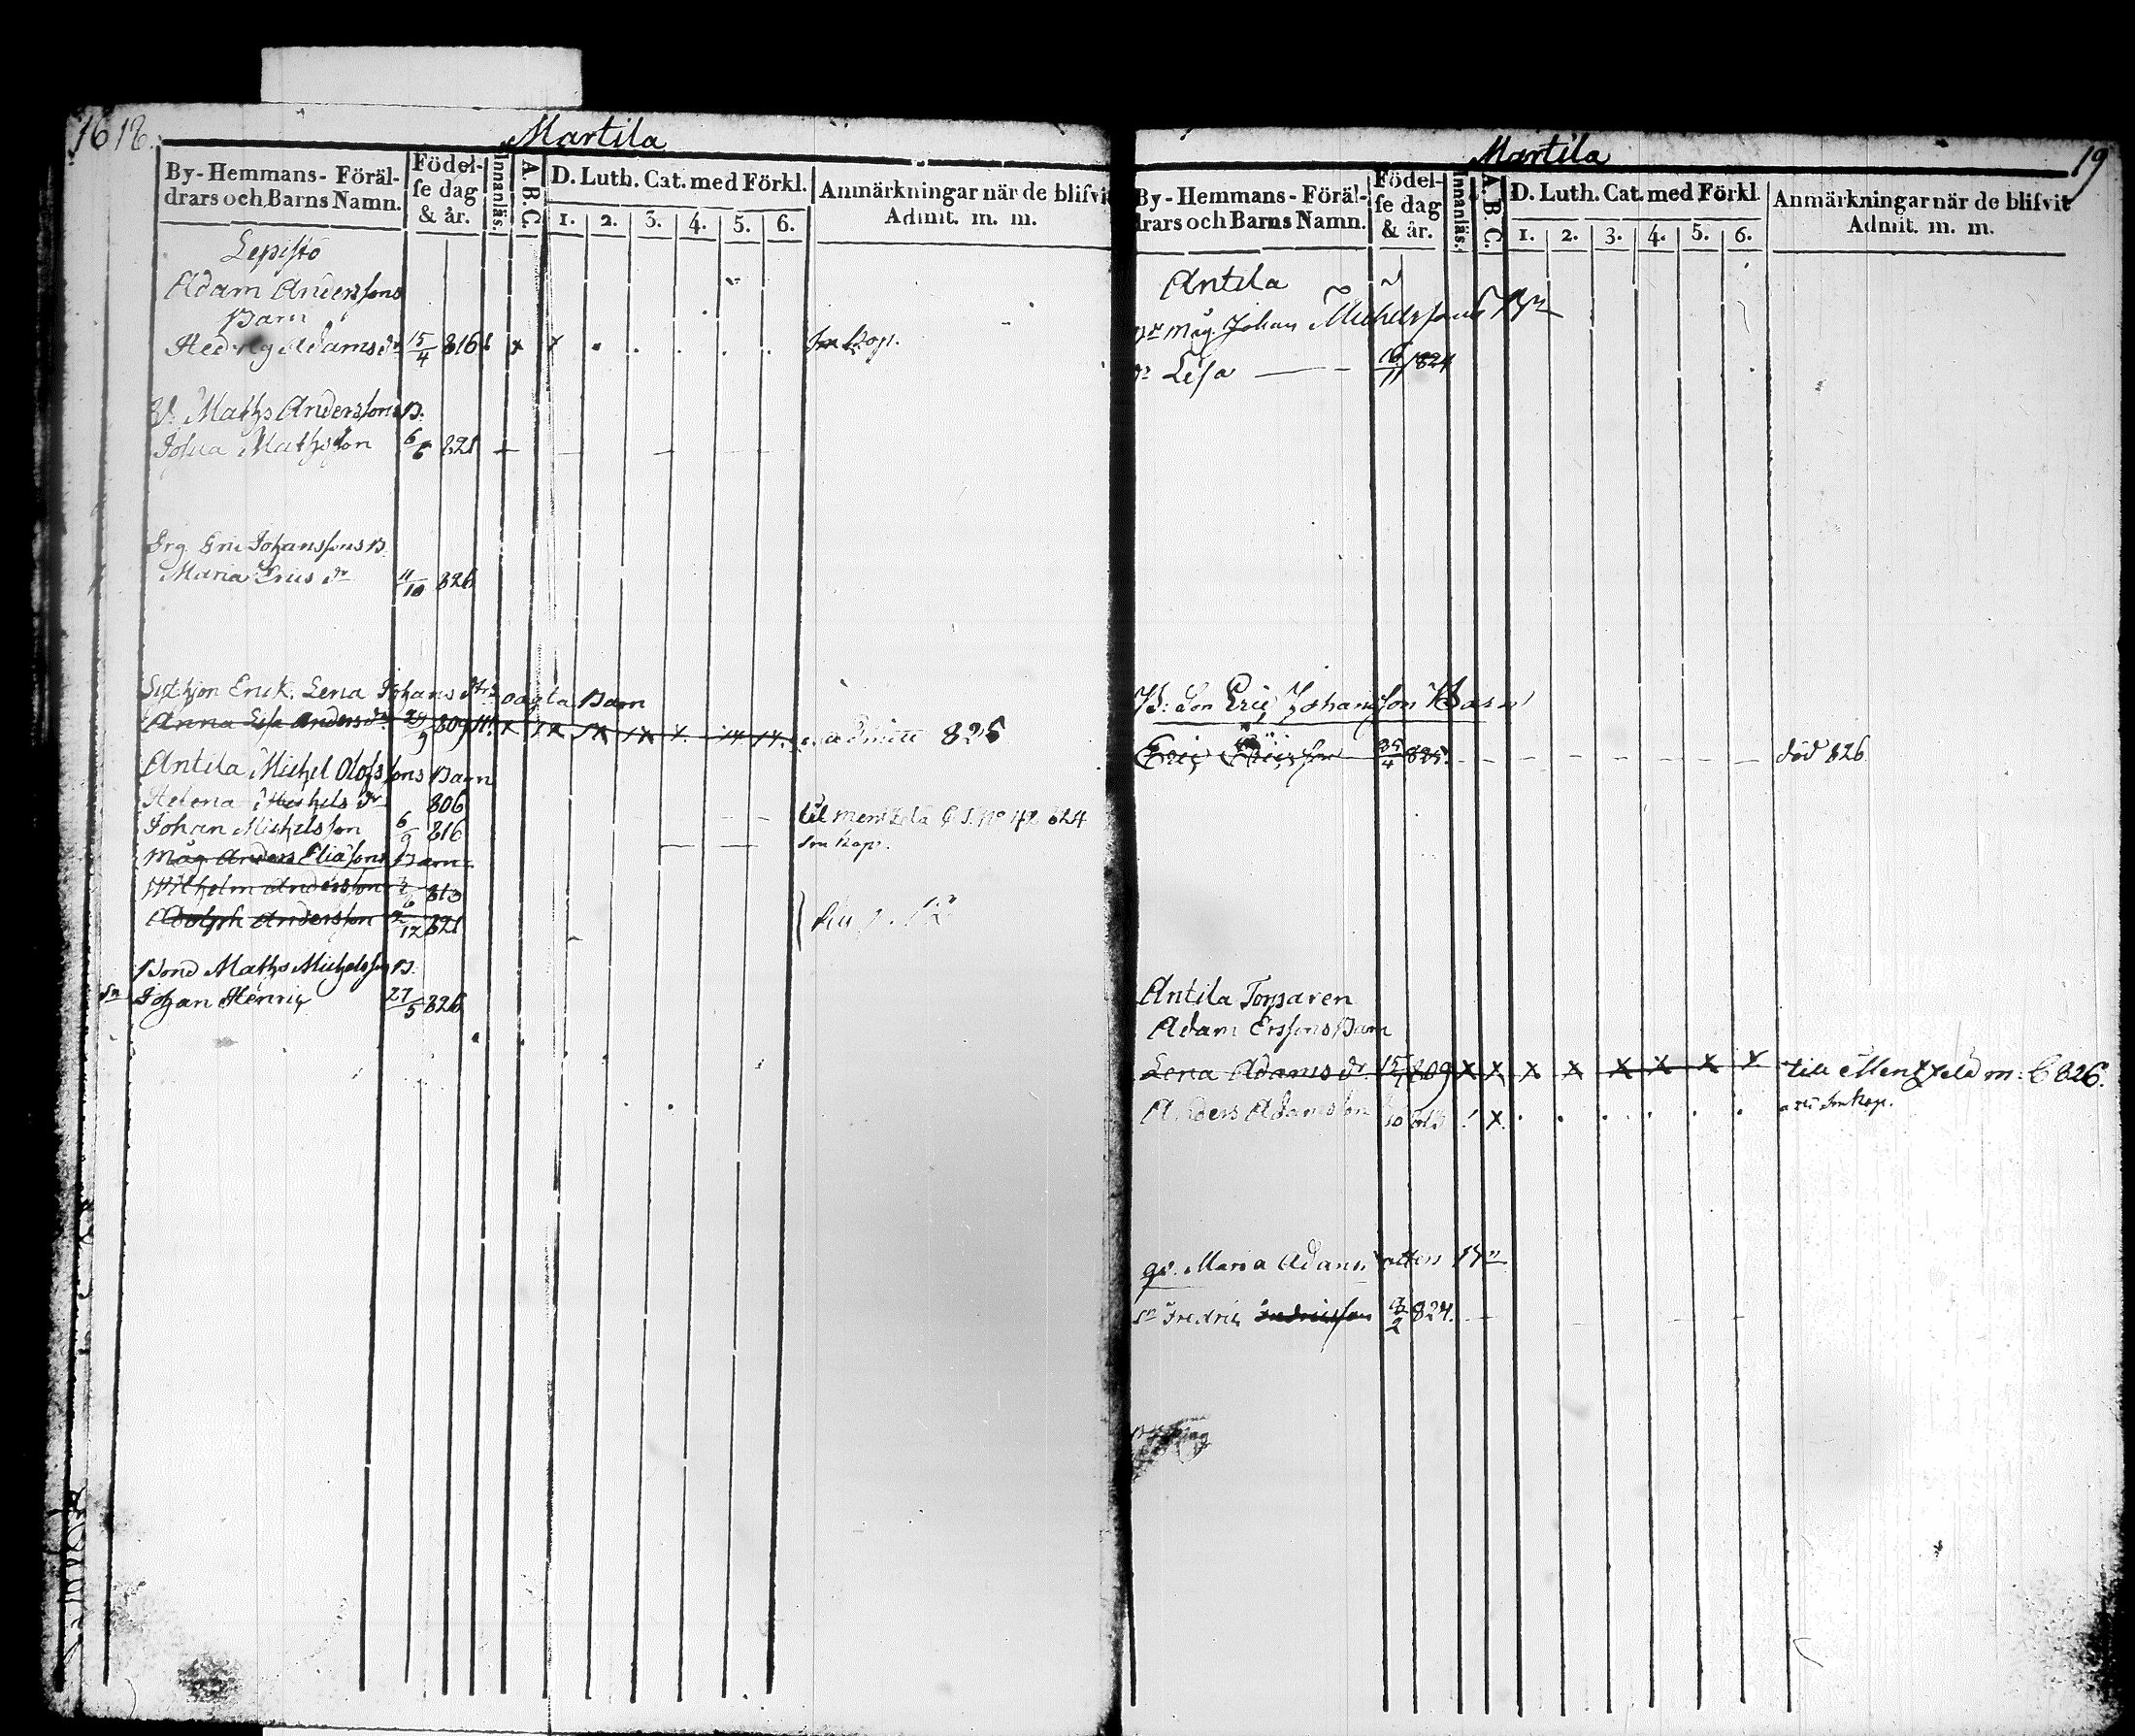 1618.
Martila
By-Hemmans-Föräl-
drars och Barns Namn.
Födel-
se dag
& år.
Innanläs.
A. B. C.
D. Luth. Cat. med Förkl.
1. 2. 3. 4. 5. 6.
Anmärkningar när de blifvit
Admit. m. m.
Lepistö
Adam Anderssons
Barn
Hedvig Adams dr 15/4 816 x x
Maths Anderssons B.
Mathsson 6/6 821
Eric Johanssons B.
Maria Erics dr 11/10 826
Enck. Lena Johans dtrs oägta Barn
Anna Lisa Anders dr 809 admitt 825
Antila Michel Olofssons Barn
Helena Michels dr 806 till 824
Johan Michelsson 6/9 816 Smkop.
Måg Anders Eliasons Barn
Wilhelm Andersson 813
Adolph Andersson 12 821
Bond Maths Michelsson B.
Sn Johan Henric 27/5 826
Martila
19
By-Hemmans-Föräl-
drars och Barns Namn.
Födel-
se dag
& år.
Innanläs.
A. B. C.
D. Luth. Cat. med Förkl.
1. 2. 3. 4. 5. 6.
Anmärkningar när de blifvit
Admit. m. m.
Antila
Måg. Johan Michelssons Bn
dr Lisa 16/11 1824
B: Son Eric Johansson Barn
Eric Ericsson 4 825. död 826
Antila Torparen
Adam Erssons Barn
Lena Adams dr 15/1 809 x x x x x x x x till 826.
Anders Adamsson 10 813 x Smkop.
Maria Adams Bn
Sn Fredric Fredricsson 2 824.